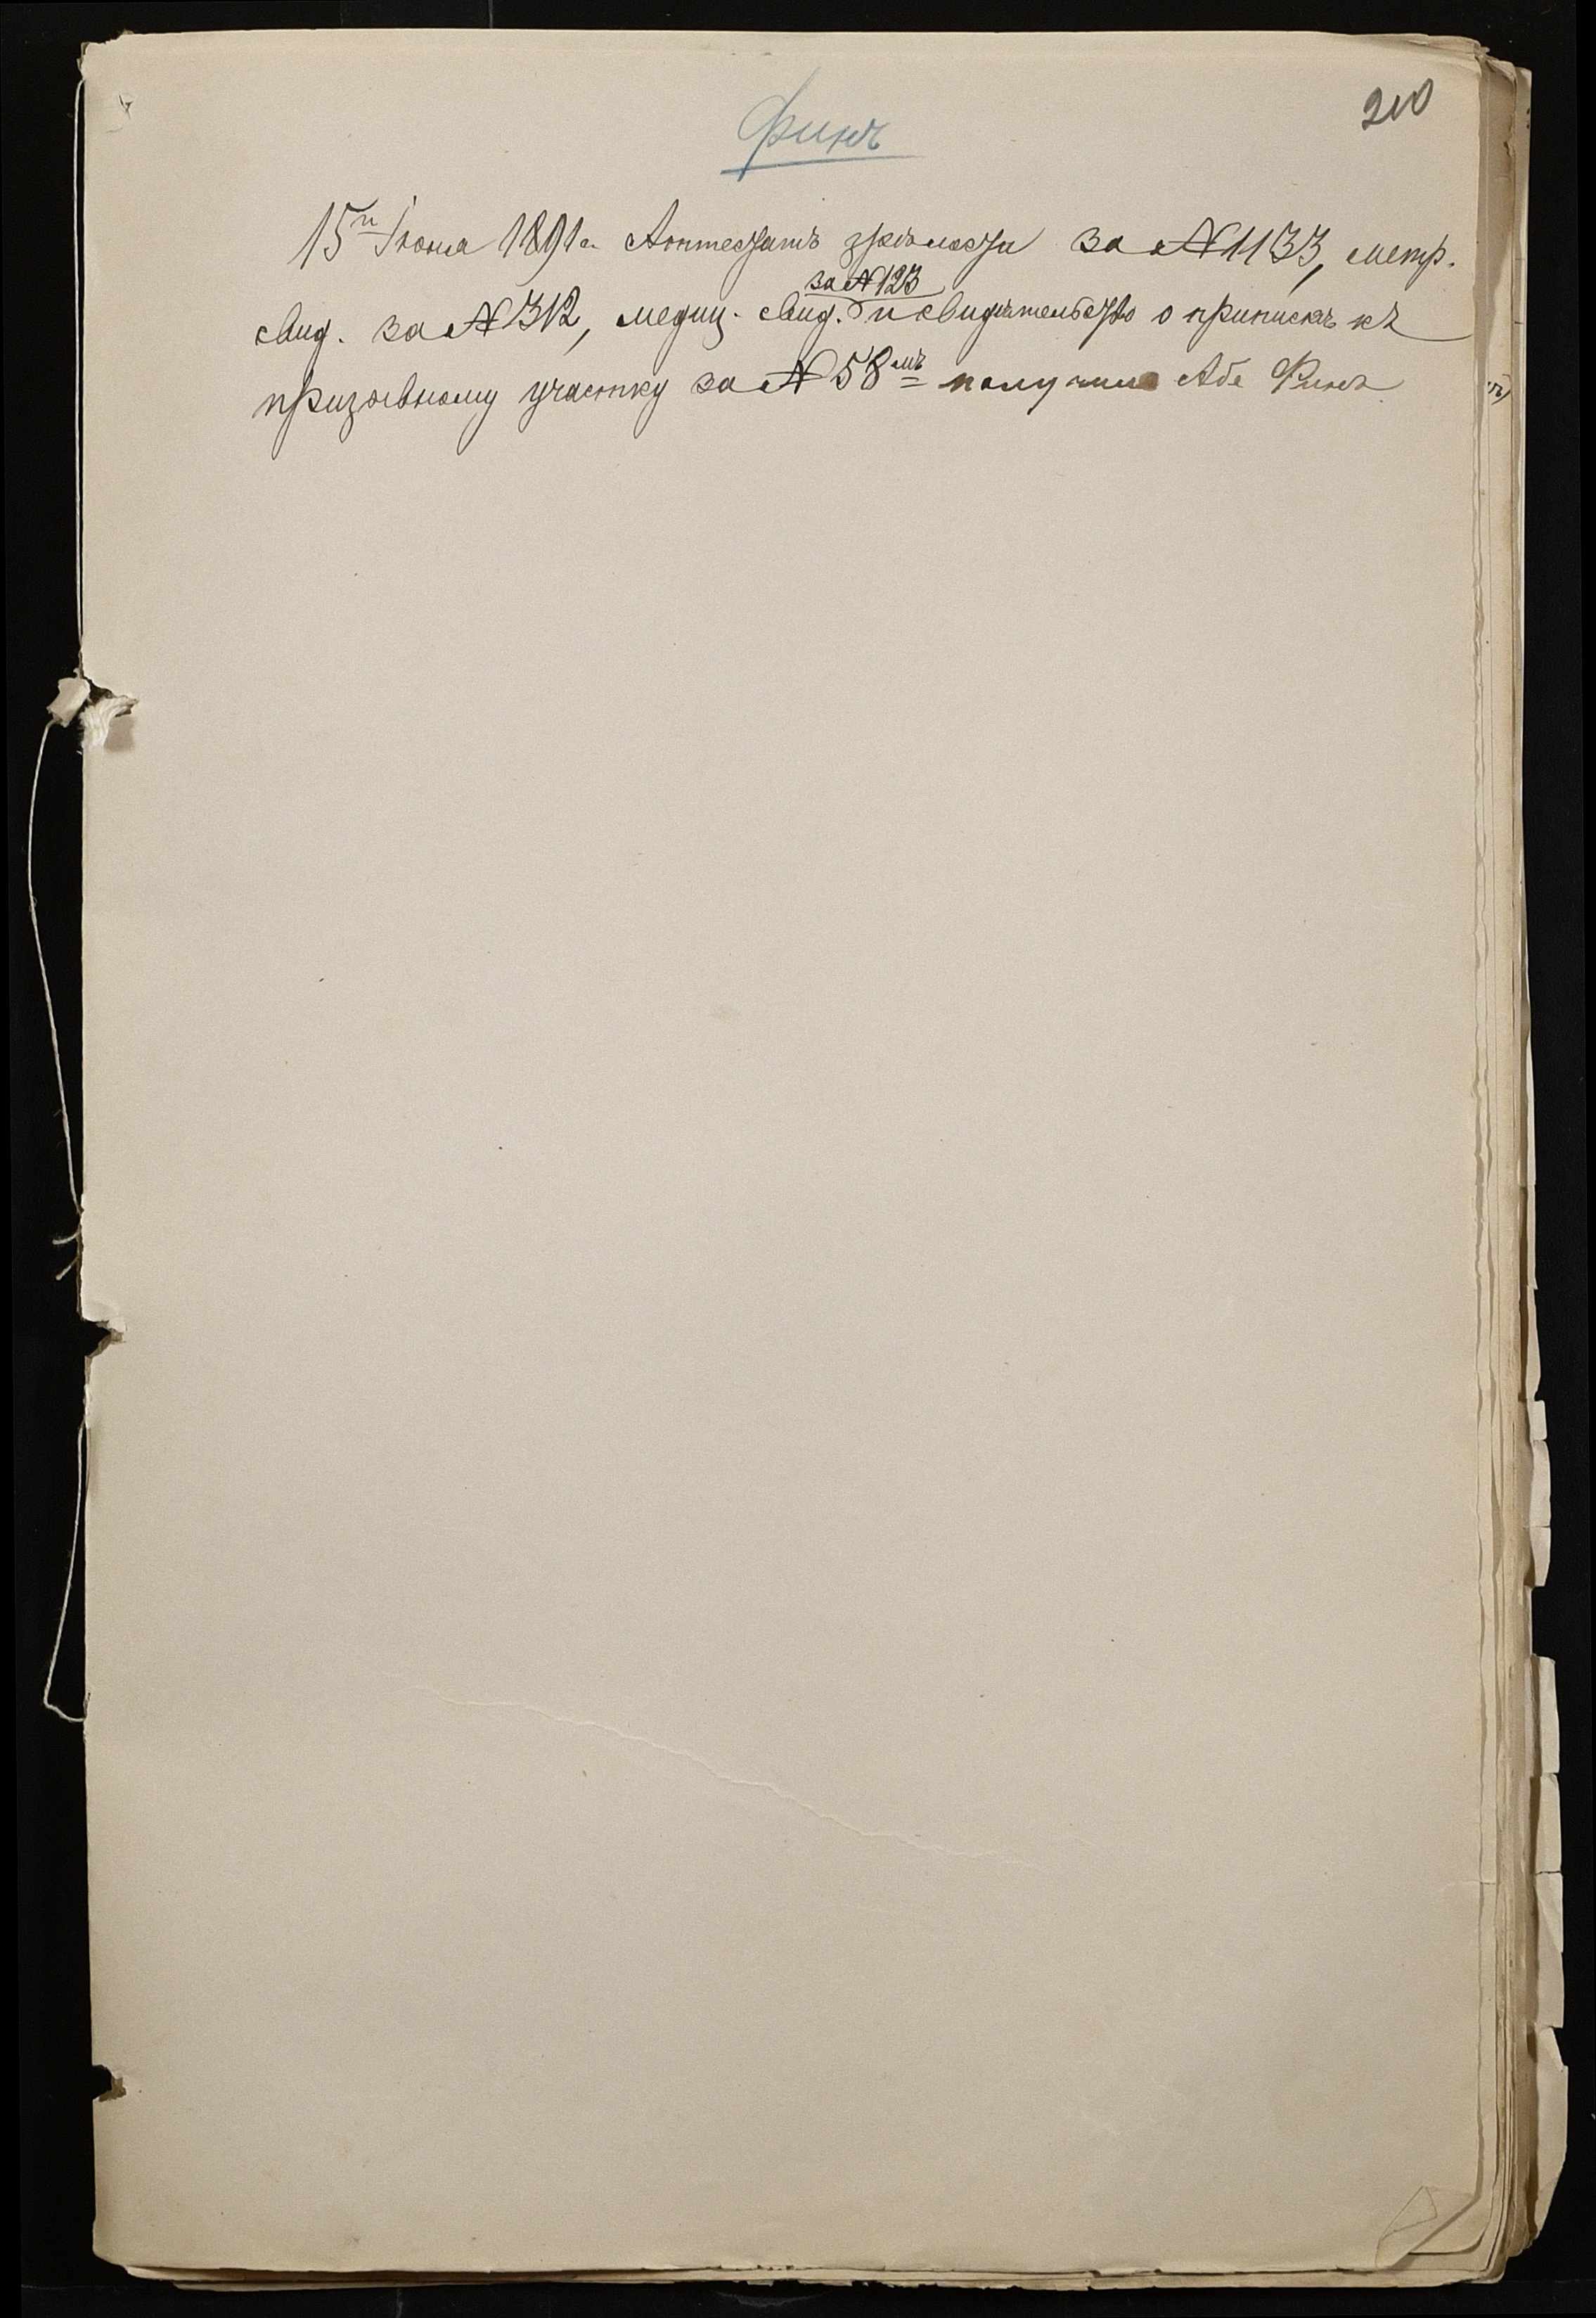 210
Финъ
15го Іюня 1891 г. Аттестатъ зрѣлости за № 1133, метр.
за № 123
свид. за № 312, медиц. свид. и свидѣтельство о припискѣ къ
призывному участку за № 58мъ получилъ Абе Финъ